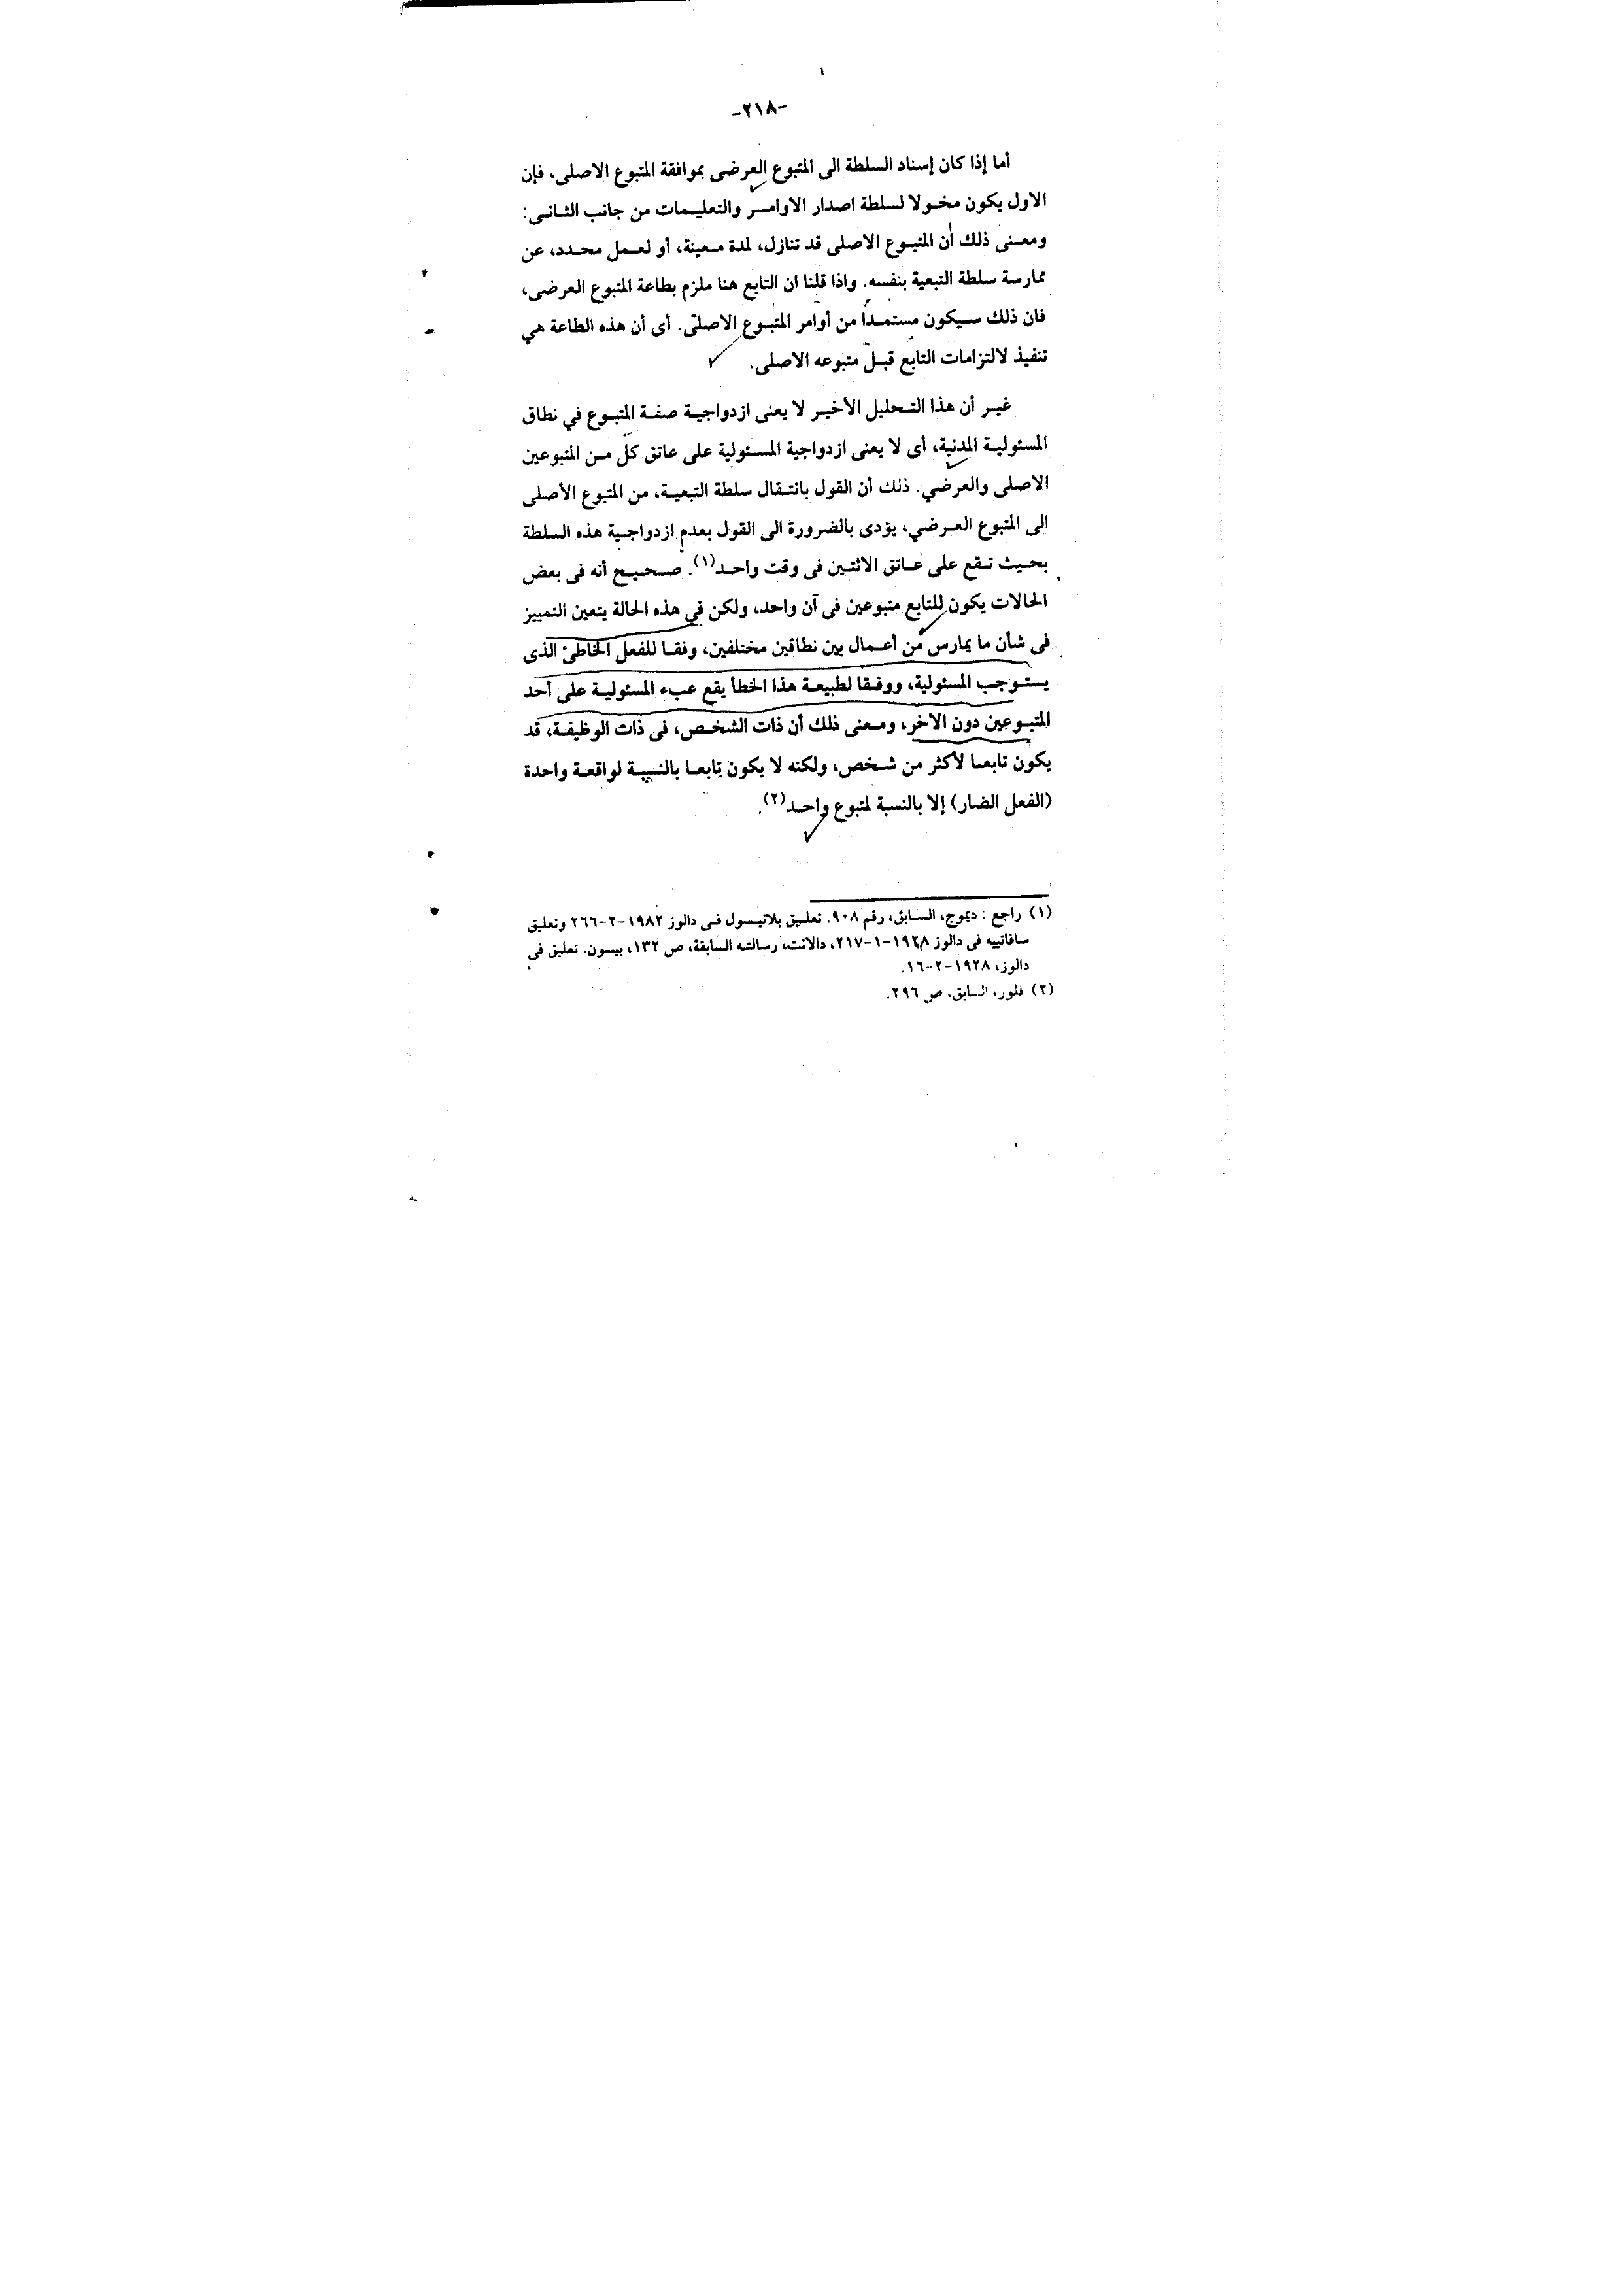 -٢١٨-
أما إذا كان إسناد السلطة الى المتبوع العرضى بموافقة المتبوع الاصلى، فإن
الاول يكون مخولا لسلطة اصدار الاوامر والتعليمات من جانب الثانى:
ومعنى ذلك أن المتبوع الاصلى قد تنازل، لمدة معينة، أو لعمل محدد، عن
ممارسة سلطة التبعية بنفسه. واذا قلنا ان التابع هنا ملزم بطاعة المتبوع العرضى،
فان ذلك سيكون مستمداً من أوامر المتبوع الاصلى. أى أن هذه الطاعة هي
تنفيذ لالتزامات التابع قبل متبوعه الاصلى.
غير أن هذا التحليل الأخير لا يعنى ازدواجية صفة المتبوع في نطاق
المسئولية المدنية، أى لا يعنى ازدواجية المسئولية على عاتق كل من المتبوعين
الاصلى والعرضي. ذلك أن القول بانتقال سلطة التبعية، من المتبوع الأصلى
الى المتبوع العرضي، يؤدى بالضرورة الى القول بعدم ازدواجية هذه السلطة
بحيث تقع على عاتق الاثنين فى وقت واحد(١). صحيح أنه فى بعض
الحالات يكون للتابع متبوعين فى آن واحد، ولكن في هذه الحالة يتعين التمييز
فى شأن ما يمارس من أعمال بين نطاقين مختلفين، وفقا للفعل الخاطئ الذى
يستوجب المسئولية، ووفقا لطبيعة هذا الخطأ يقع عبء المسئولية على أحد
المتبوعين دون الاخر، ومعنى ذلك أن ذات الشخص، فى ذات الوظيفة، قد
يكون تابعا لأكثر من شخص، ولكنه لا يكون تابعا بالنسبة لواقعة واحدة
(الفعل الضار) إلا بالنسبة لمتبوع واحد(٢).
(١) راجع : ديموج، السابق، رقم ٩٠٨. تعليق بلانيسول فى دالوز ١٩٨٢-٢-٢٦٦ وتعليق
سافاتييه فى دالوز ١٩٢٨-١-٢١٧، دالانت، رسالته السابقة، ص ١٣٢، بيسون. تعليق فى
دالوز، ١٩٢٨-٢-١٦.
(٢) فلور، السابق، ص ٢٩٦.